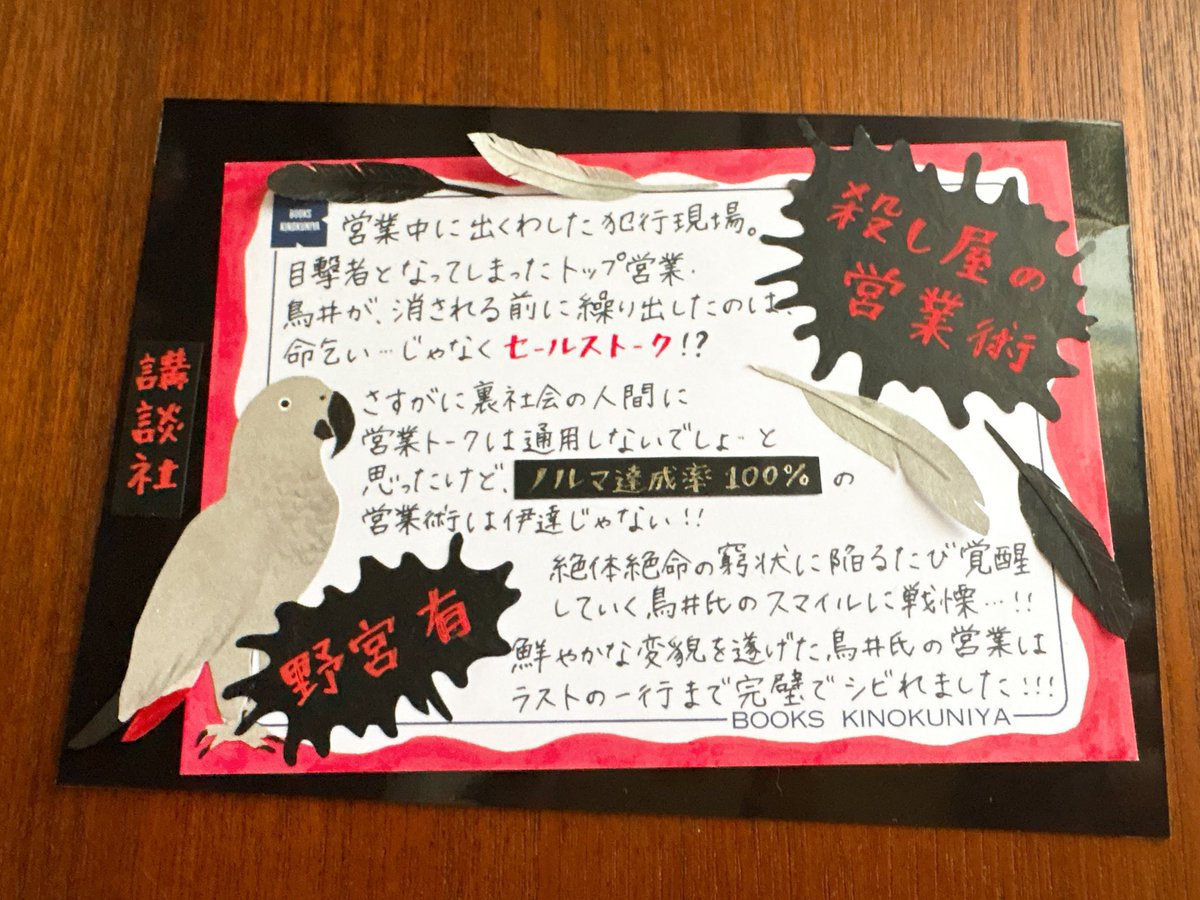 殺し屋の
営業術
BOOKS
KINOKUNIYA
営業中に出くわした犯行現場。
目撃者となってしまったトップ営業・
鳥井が、消される前に繰り出したのは、
命乞い…じゃなくセールストーク!?
さすがに裏社会の人間に
営業トークは通用しないでしょ…と
思ったけど、ノルマ達成率100%の
営業術は伊達じゃない!!
絶体絶命の窮状に陥るたび覚醒
していく鳥井氏のスマイルに戦慄…!!
鮮やかな変貌を遂げた鳥井氏の営業は
ラストの一行まで完璧でシビれました!!!
講談社
野宮有
BOOKS KINOKUNIYA